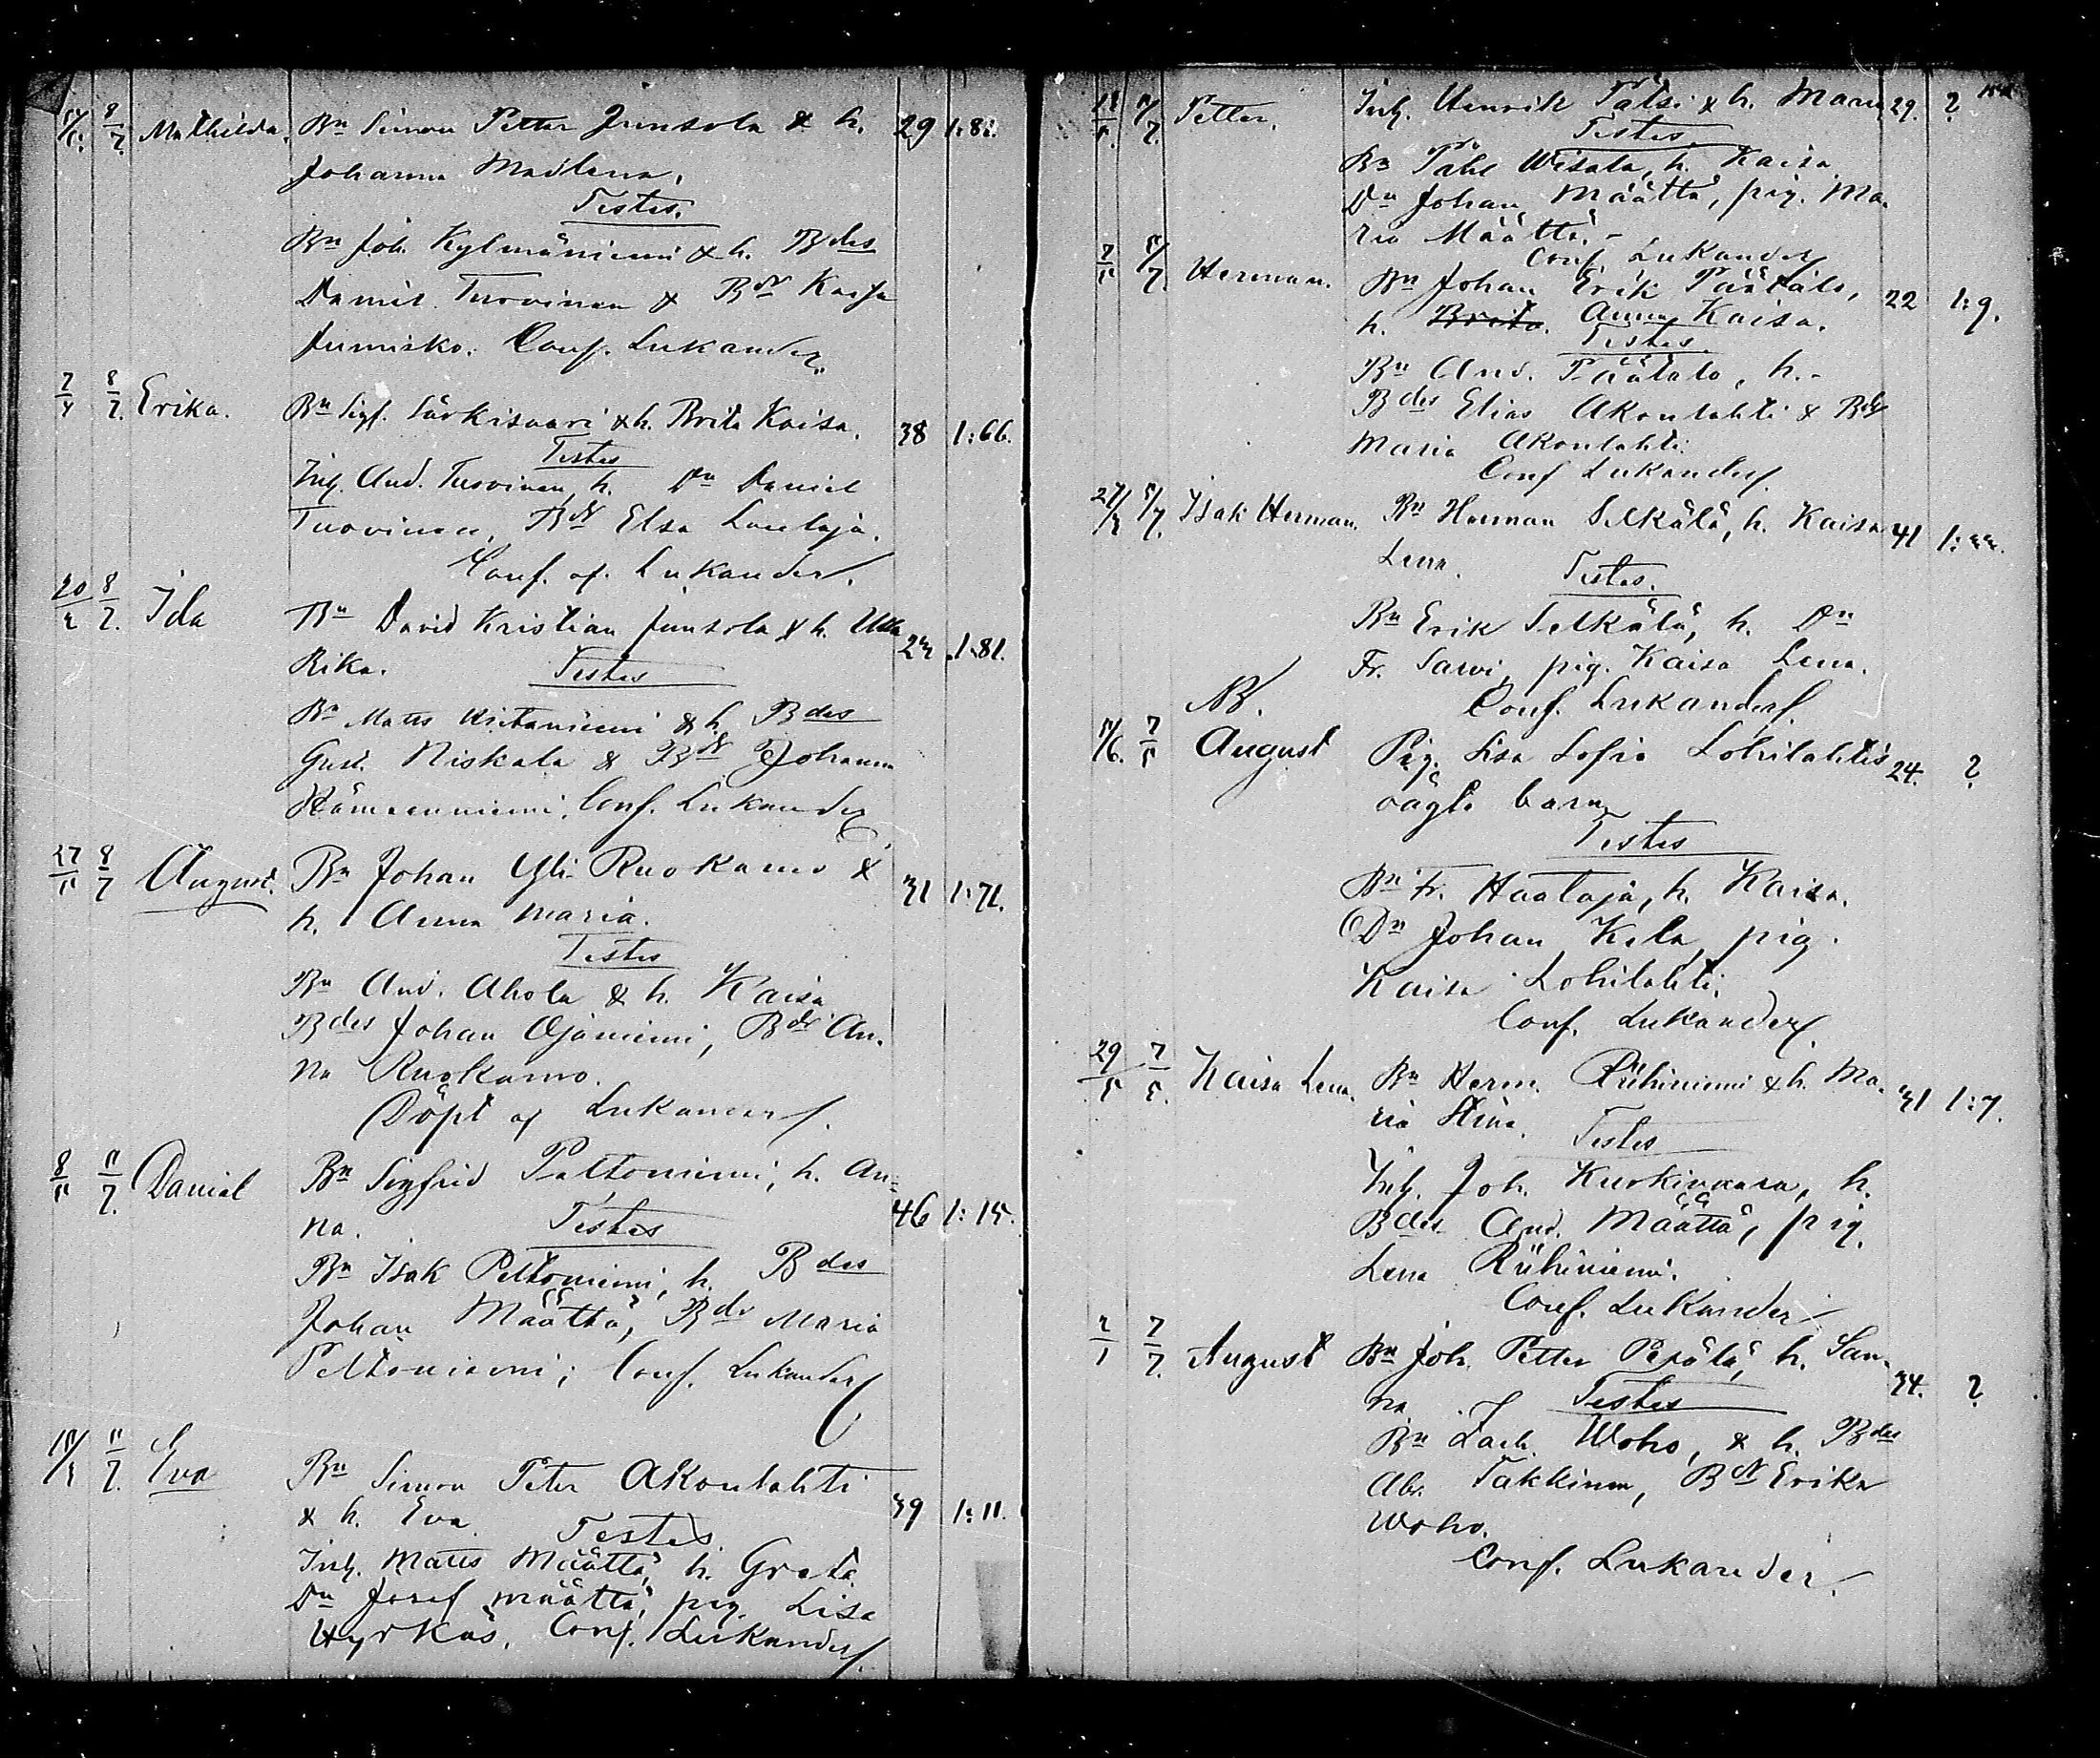 8/7. Mathilda. Bn Simon Petter Junsola & h. 29 1:8
Johanna Madlena.
Testes.
Bn Joh. Kylmäniemi & h. Bdes
Daniel Tuovinen & Bdr Kajsa
Jumisko. Conf. Lukander.
8/7. Erika. Bn Sigf. Särkisaari & h. Brita Kaisa. 38 1:66.
Testes
Inh. And. Tuovinen, h. Dn Daniel
Tuovinen, Bdr Elsa Lautaja.
Conf. af Lukander.
8/7. Ida Bn David Kristian Junsola & h. Ulla 23 1:81.
Rika. Testes
Bn Matts & h. Bdes
Gust. Niskala & Bdr Johanna
Conf. Lukander
27/5 8/7 August. Bn Johan Yli-Ruokamo & 31 1:71.
h. Anna Maria.
Testes
Bn And. Ahola & h. Kaisa
Bdes Johan Ojaniemi, Bdr An-
na Ruokamo.
Döpt af Lukander.
8/5 11/7. Daniel Bn Sigfrid Peltoniemi, h. An- 46 1:15.
na. Testes
Bn Isak Peltoniemi, h. Bdes
Johan Määttä, Bdr Maria
Peltoniemi; Conf. Lukander
11/7. Eva Bn Simon Peter Akonlahti 39 1:11.
& h. Eva. Testes
Inh. Matts Määttä, h. Greta.
Dn Josef Määttä, pig. Lisa
Hyrkäs. Conf. Lukander.
Petter. Inh. Henrik Pätsi & h. Maria 29. ?
Testes.
Bn Wisala, h. Kaisa
Dn Johan Määttä, pig. Ma-
ria Määttä.-
Conf. Lukander
Herman. Bn Johan Erik Päätalo, 22 1:9.
h. Brita. Anna Kaisa.
Testes.
Bn And. Päätalo, h.-
Bdes Elias Akonlahti & Bdr
Maria Akonlahti.
Conf Lukander.
Isak Herman. Bn Herman Selkälä, h. Kaisa 41 1:33.
Lena. Testes.
Bn Erik Selkälä, h. Dn
Fr. Sarvi, pig. Kaisa Lena.
NB. Conf. Lukander.
7/5 August Pig. Lisa Sofia Lohilahtis 24. ?
oägta barn
Testes
Bn Fr. Haataja, h. Kaisa.
Dn Johan Kela, pig.
Kaisa Lohilahti.
Conf. Lukander.
29/5 Kaisa Lena. Bn Herm. Riihiniemi & h. Ma- 31 1:7.
ria Stina. Testes
Inh. Joh. Kurkivaara, h.
Bdes And. Määttä, pig.
Lena Riihiniemi.
Conf. Lukander
7/7. August Bn Joh. Petter Perälä, h. San- 34. ?
na. Testes
Bn Zach. Woho, & h. Bdes
Abr. Takkinen, Bdr Erika
Woho.
Conf. Lukander.